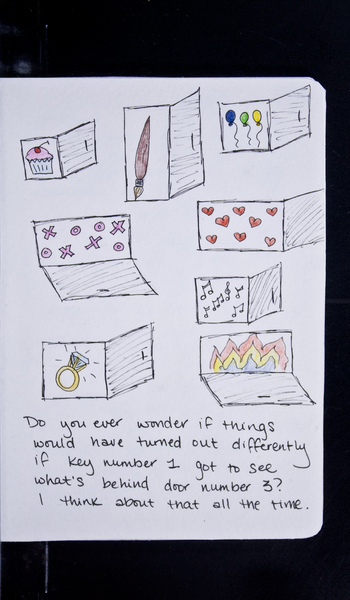 Do you ever wonder if things
would have turned out differently
if key number 1 got to see
what's behind door number 3?
I think about that all the time.